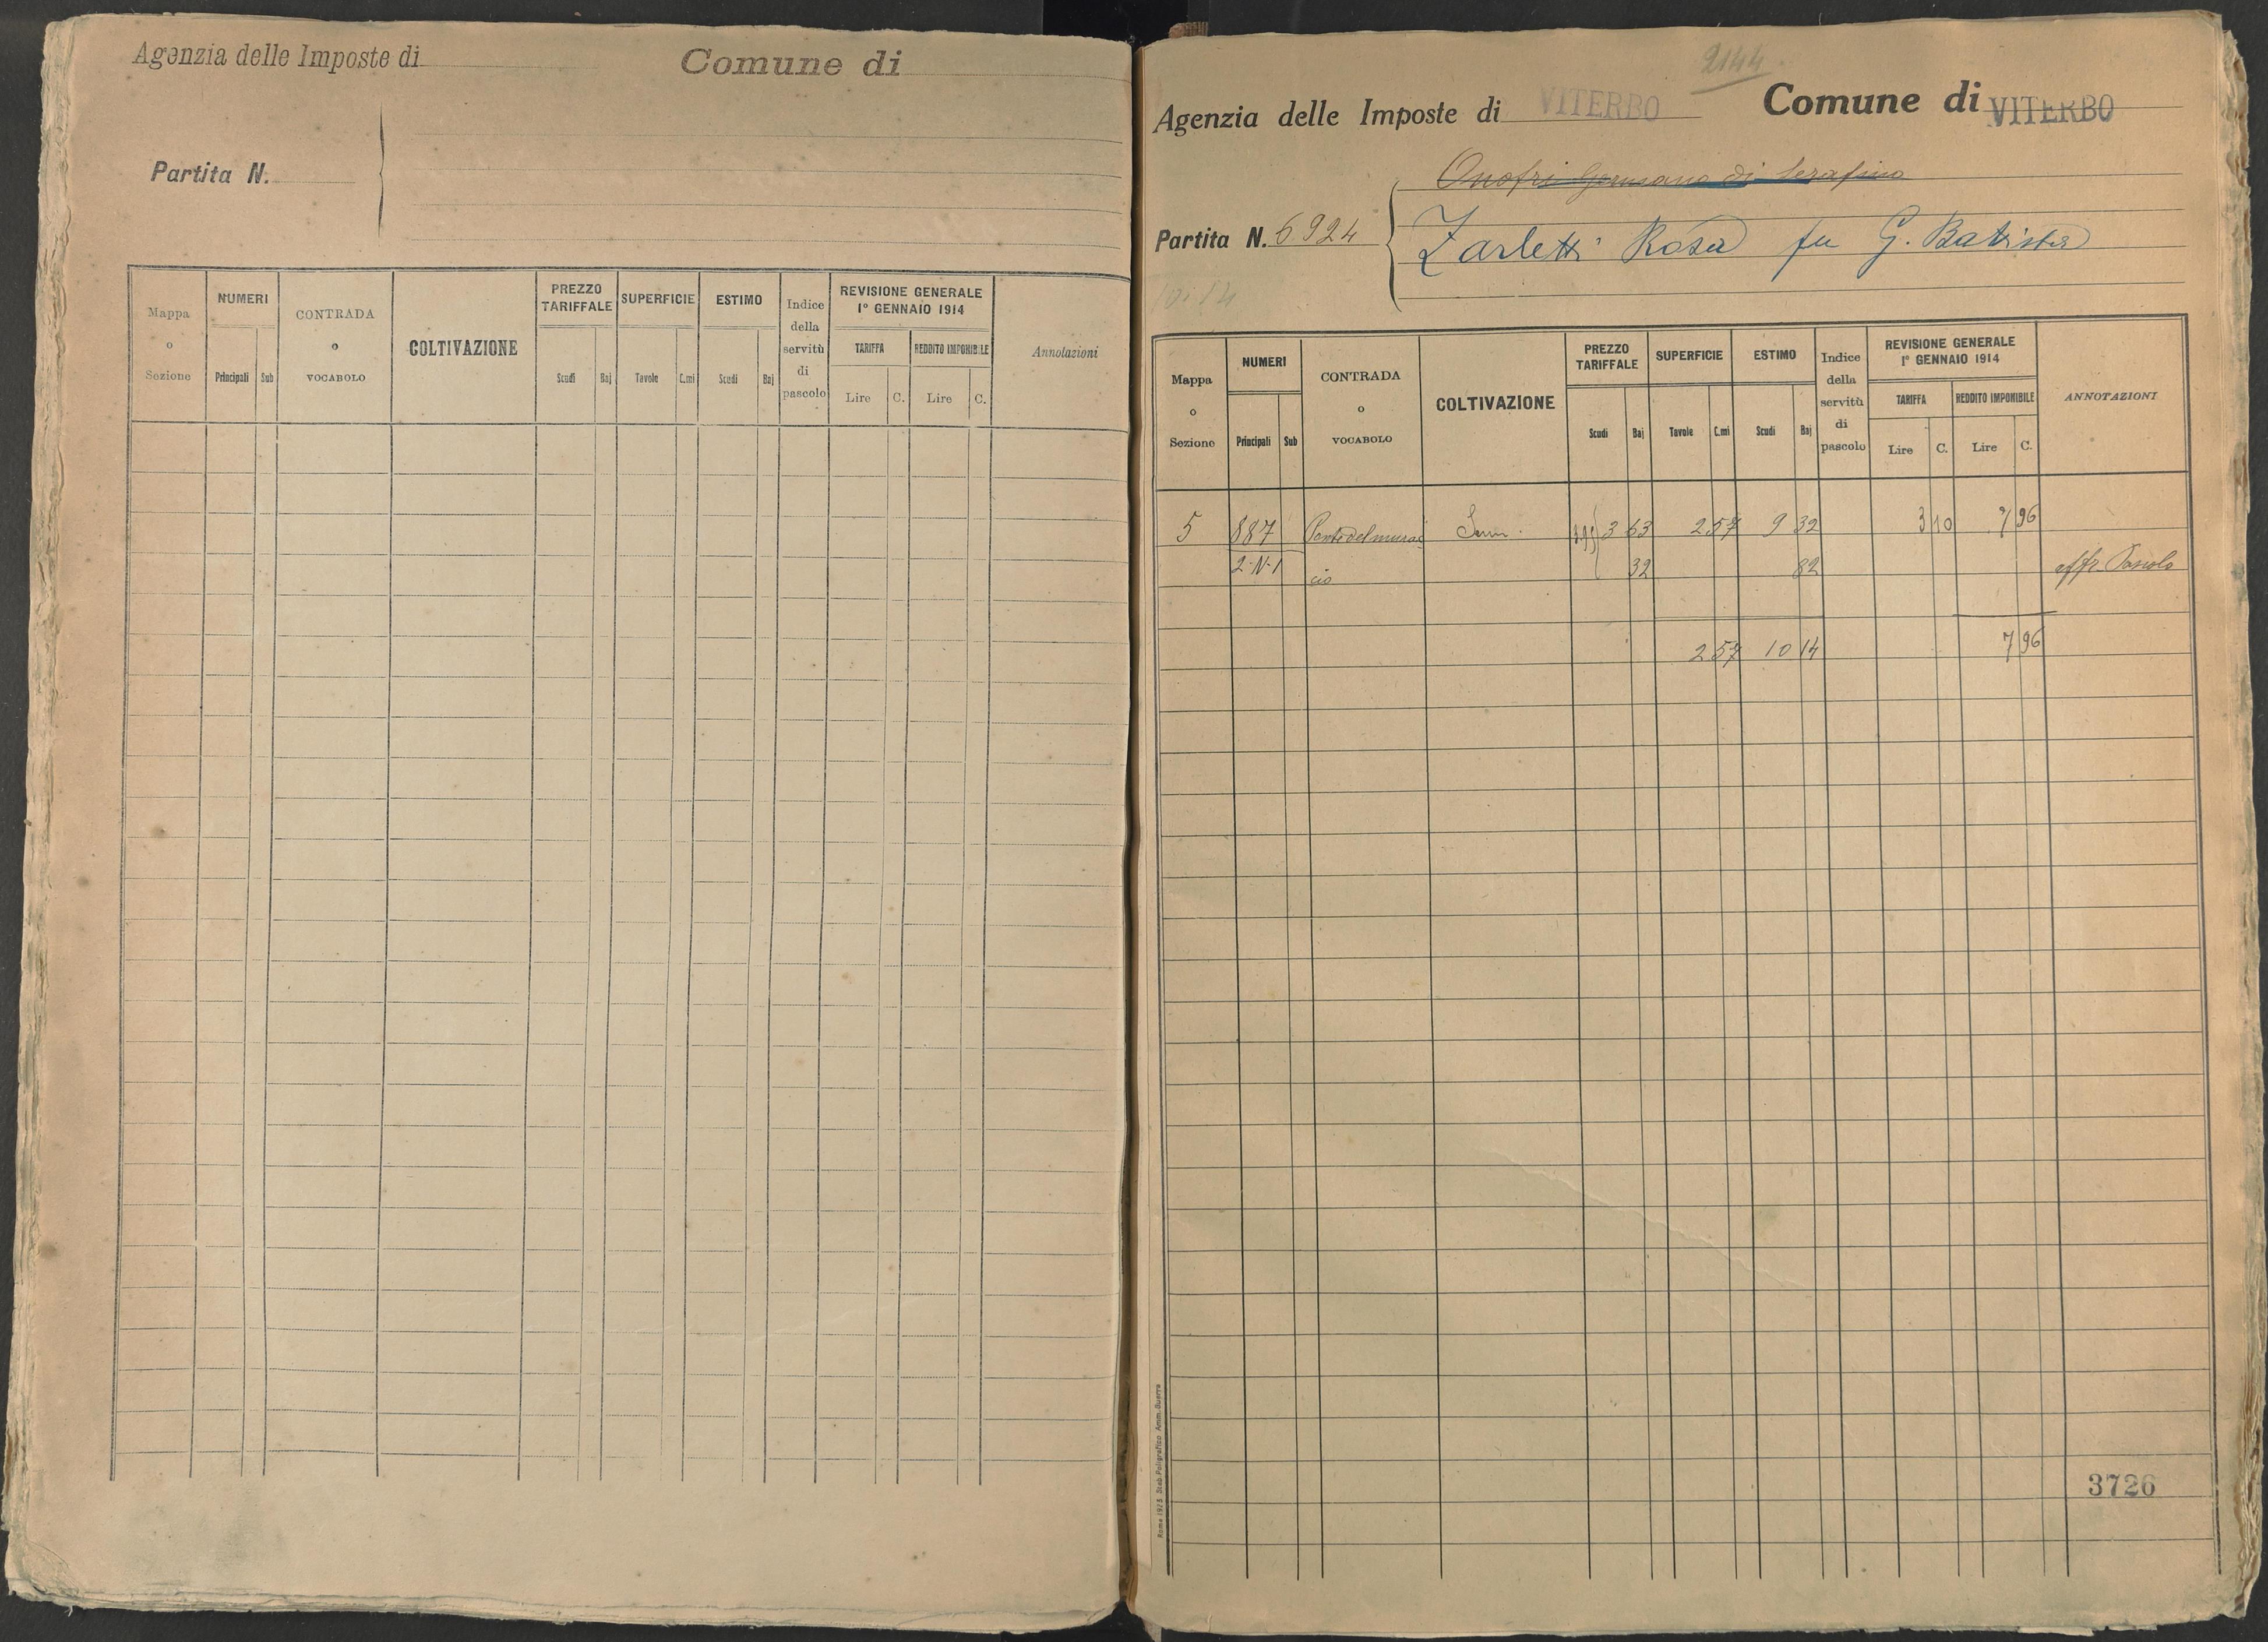 Agenzia delle Imposte di Comune di
Partita N.
Mappa o Sezione NUMERI Principali Sub CONTRADA o VOCABOLO COLTIVAZIONE PREZZO TARIFFALE Scudi Baj SUPERFICIE Tavole C.mi ESTIMO Scudi Baj Indice della servitù di pascolo REVISIONE GENERALE 1° GENNAIO 1914 TARIFFA Lire C. REDDITO IMPONIBILE Lire C. Annotazioni
2144
Agenzia delle Imposte di VITERBO Comune di VITERBO
Onofri Germano di Serafino
Partita N. 6924 Zarletti Rosa fu G. Batista
Mappa o Sezione NUMERI Principali Sub CONTRADA o VOCABOLO COLTIVAZIONE PREZZO TARIFFALE Scudi Baj SUPERFICIE Tavole C.mi ESTIMO Scudi Baj Indice della servitù di pascolo REVISIONE GENERALE 1° GENNAIO 1914 TARIFFA Lire C. REDDITO IMPONIBILE Lire C. ANNOTAZIONI
5 887 Pontedelmurac Sem. 3 63 2 57 9 32 3 10 7 96
2.N.1 cio 32 82 affr. Pascolo
2 57 10 14 7 96
3726
Roma 1923. Stab. Poligrafico Amm. Guerra